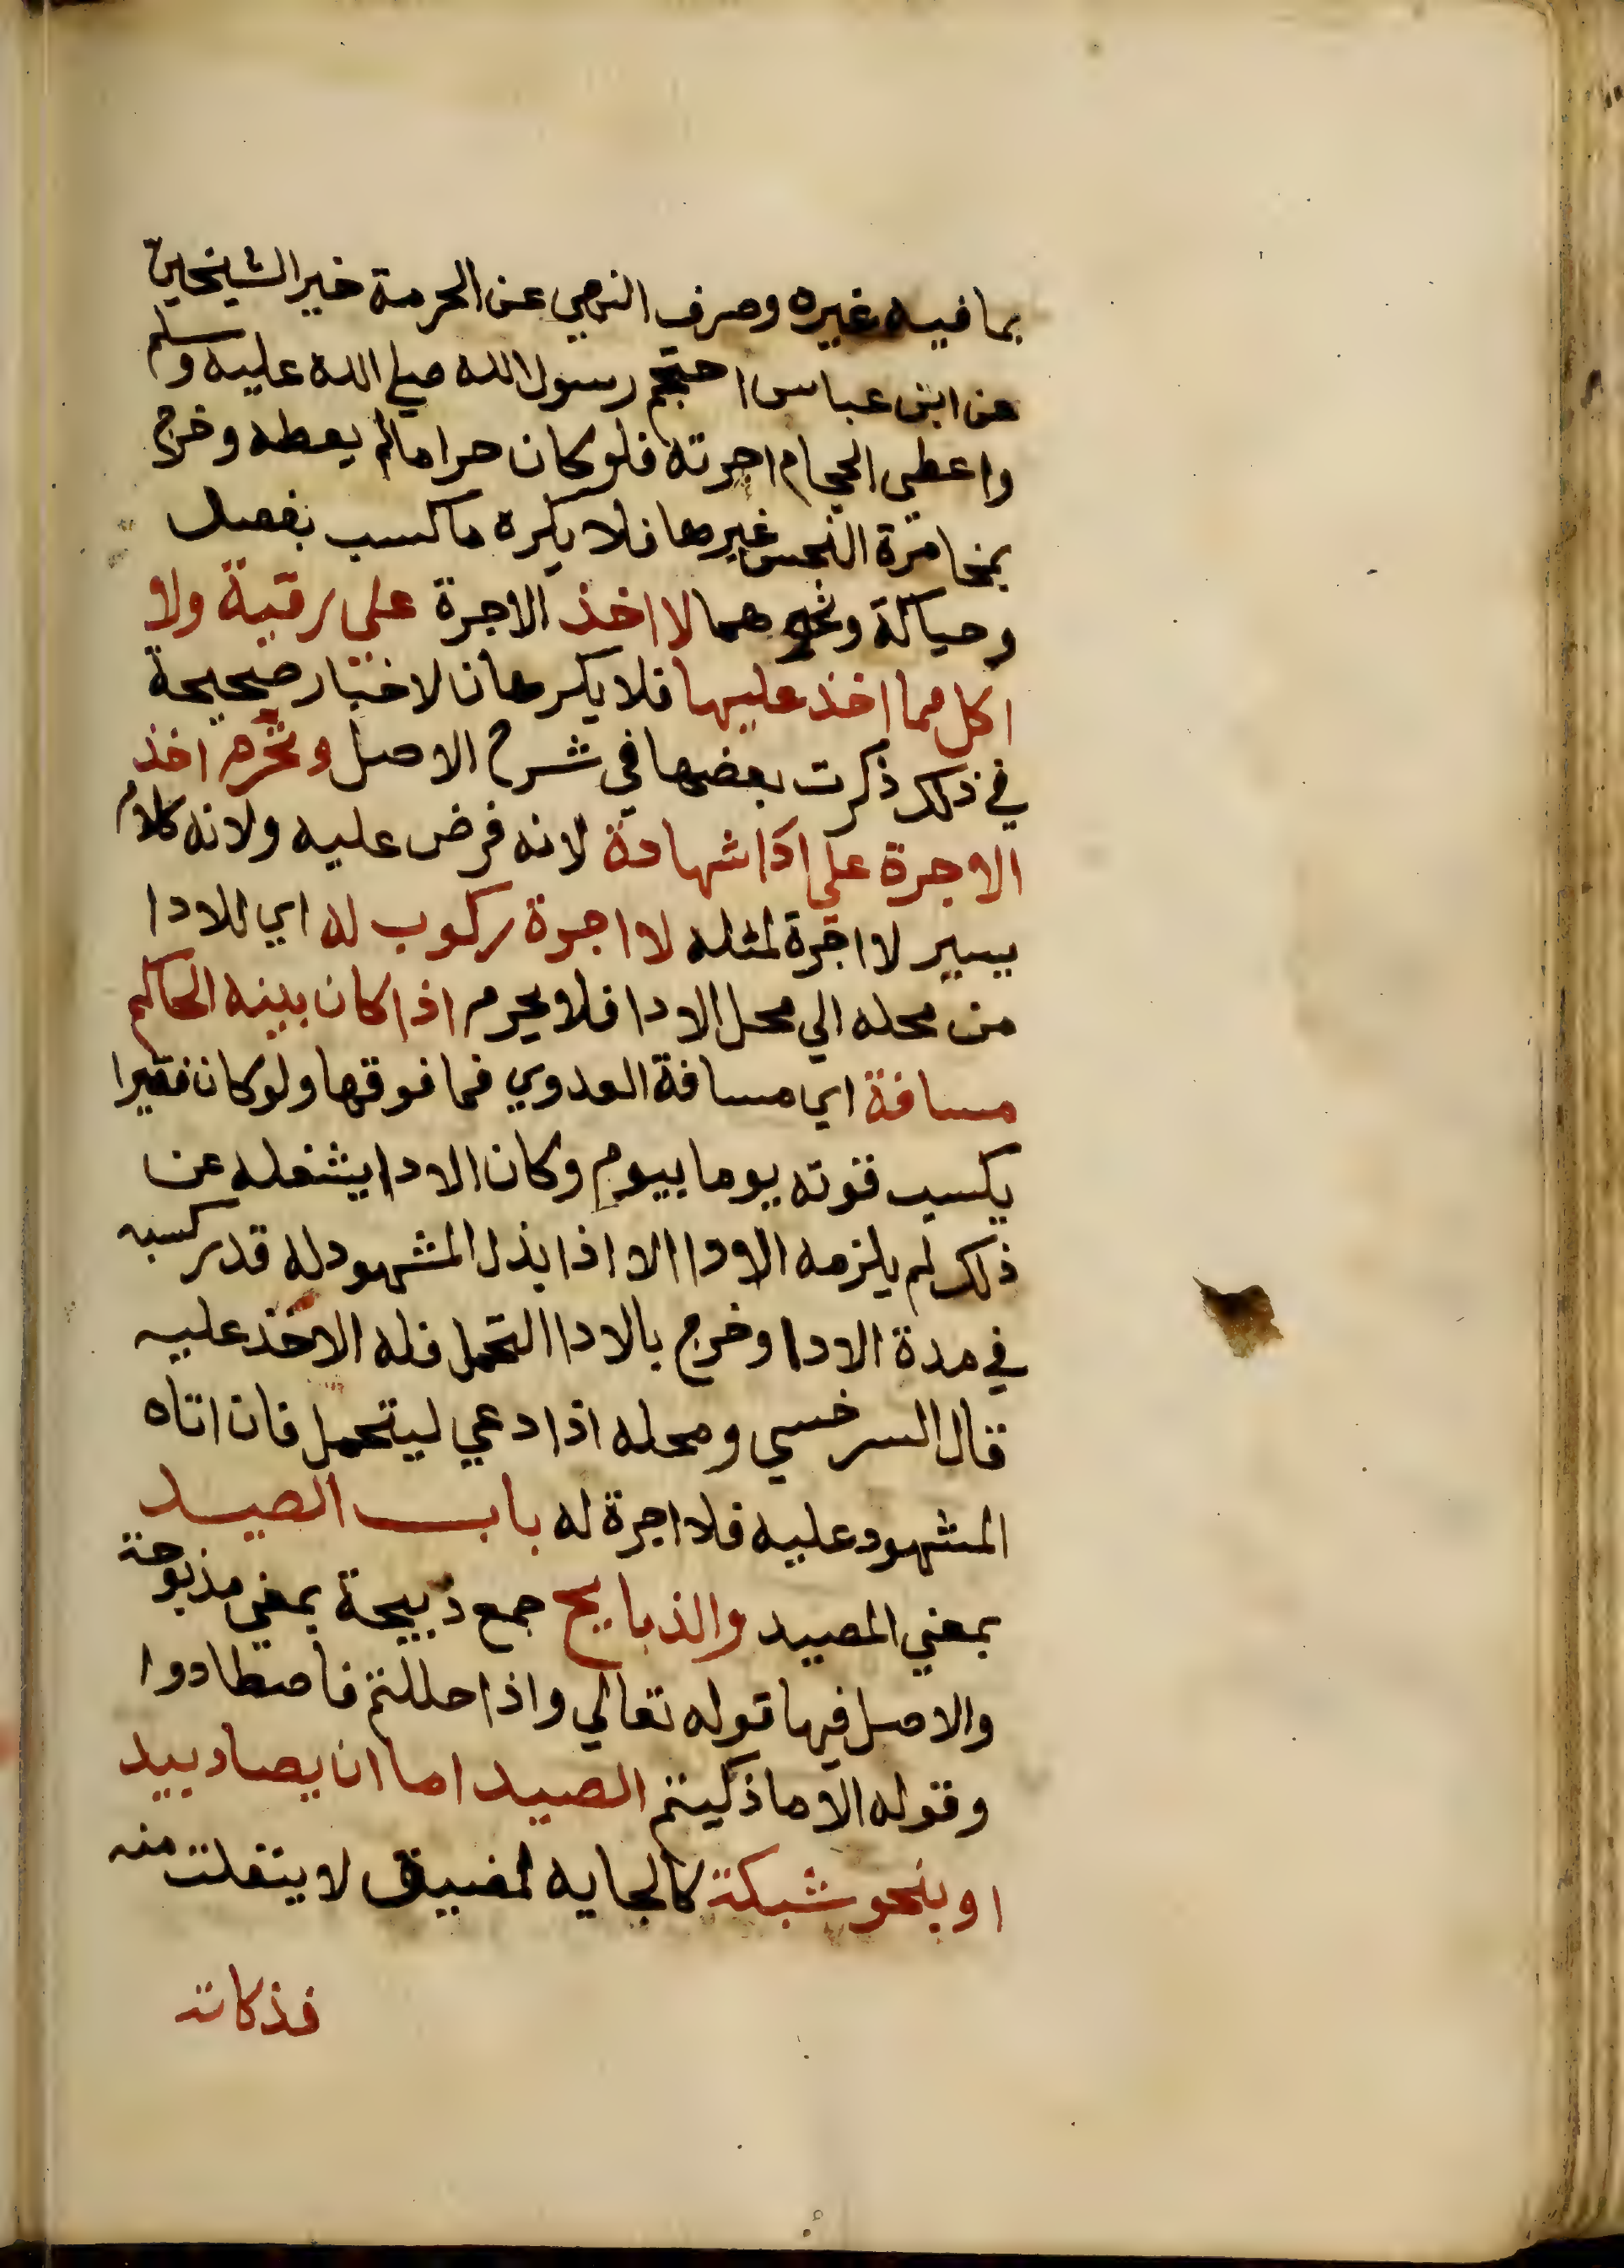 بما فيه غيره وصرف النهي عن الحرمة خبر الشيخين
عن ابن عباس احتجم رسول الله صلي الله عليه وسلم
واعطي الحجام اجرته فلو كان حراما لم يعطه وخرج
بمخامرة النجس غيرها فلا يكره ما كسب بفصد
وحياكة ونحوهما لا اخذ الاجرة علي رقية ولا
اكل مما اخذ عليها فلا يكرهان لاخبار صحيحة
في ذلك ذكرت بعضها في شرح الاصل وتحرم اخذ
الاجرة علي ادا شهادة لانه فرض عليه ولانه كلام
يسير لا اجرة لمثله لا اجرة ركوب له اي للادا
من محله الي محل الادا فلا يحرم اذا كان بينه الحاكم
مسافة اي مسافة العدوي فما فوقها ولو كان فقيرا
يكسب قوته يوما بيوم وكان الادا يشغله عن
ذلك لم يلزمه الادا الا اذا بذل المشهود له قدر كسبه
في مدة الادا وخرج بالادا التحمل فله الاخذ عليه
قال السرخسي ومحله اذا دعي ليتحمل فان اتاه
المشهود عليه فلا اجرة له باب الصيد
بمعني المصيد والذبايح جمع ذبيحة بمعني مذبوحة
والاصل فيها قوله تعالي واذا حللتم فاصطادوا
وقوله الا ما ذكيتم الصيد اما ان يصاد بيد
او بنحو شبكة كالجايه لمضيق لا ينفلت منه
فذكاته